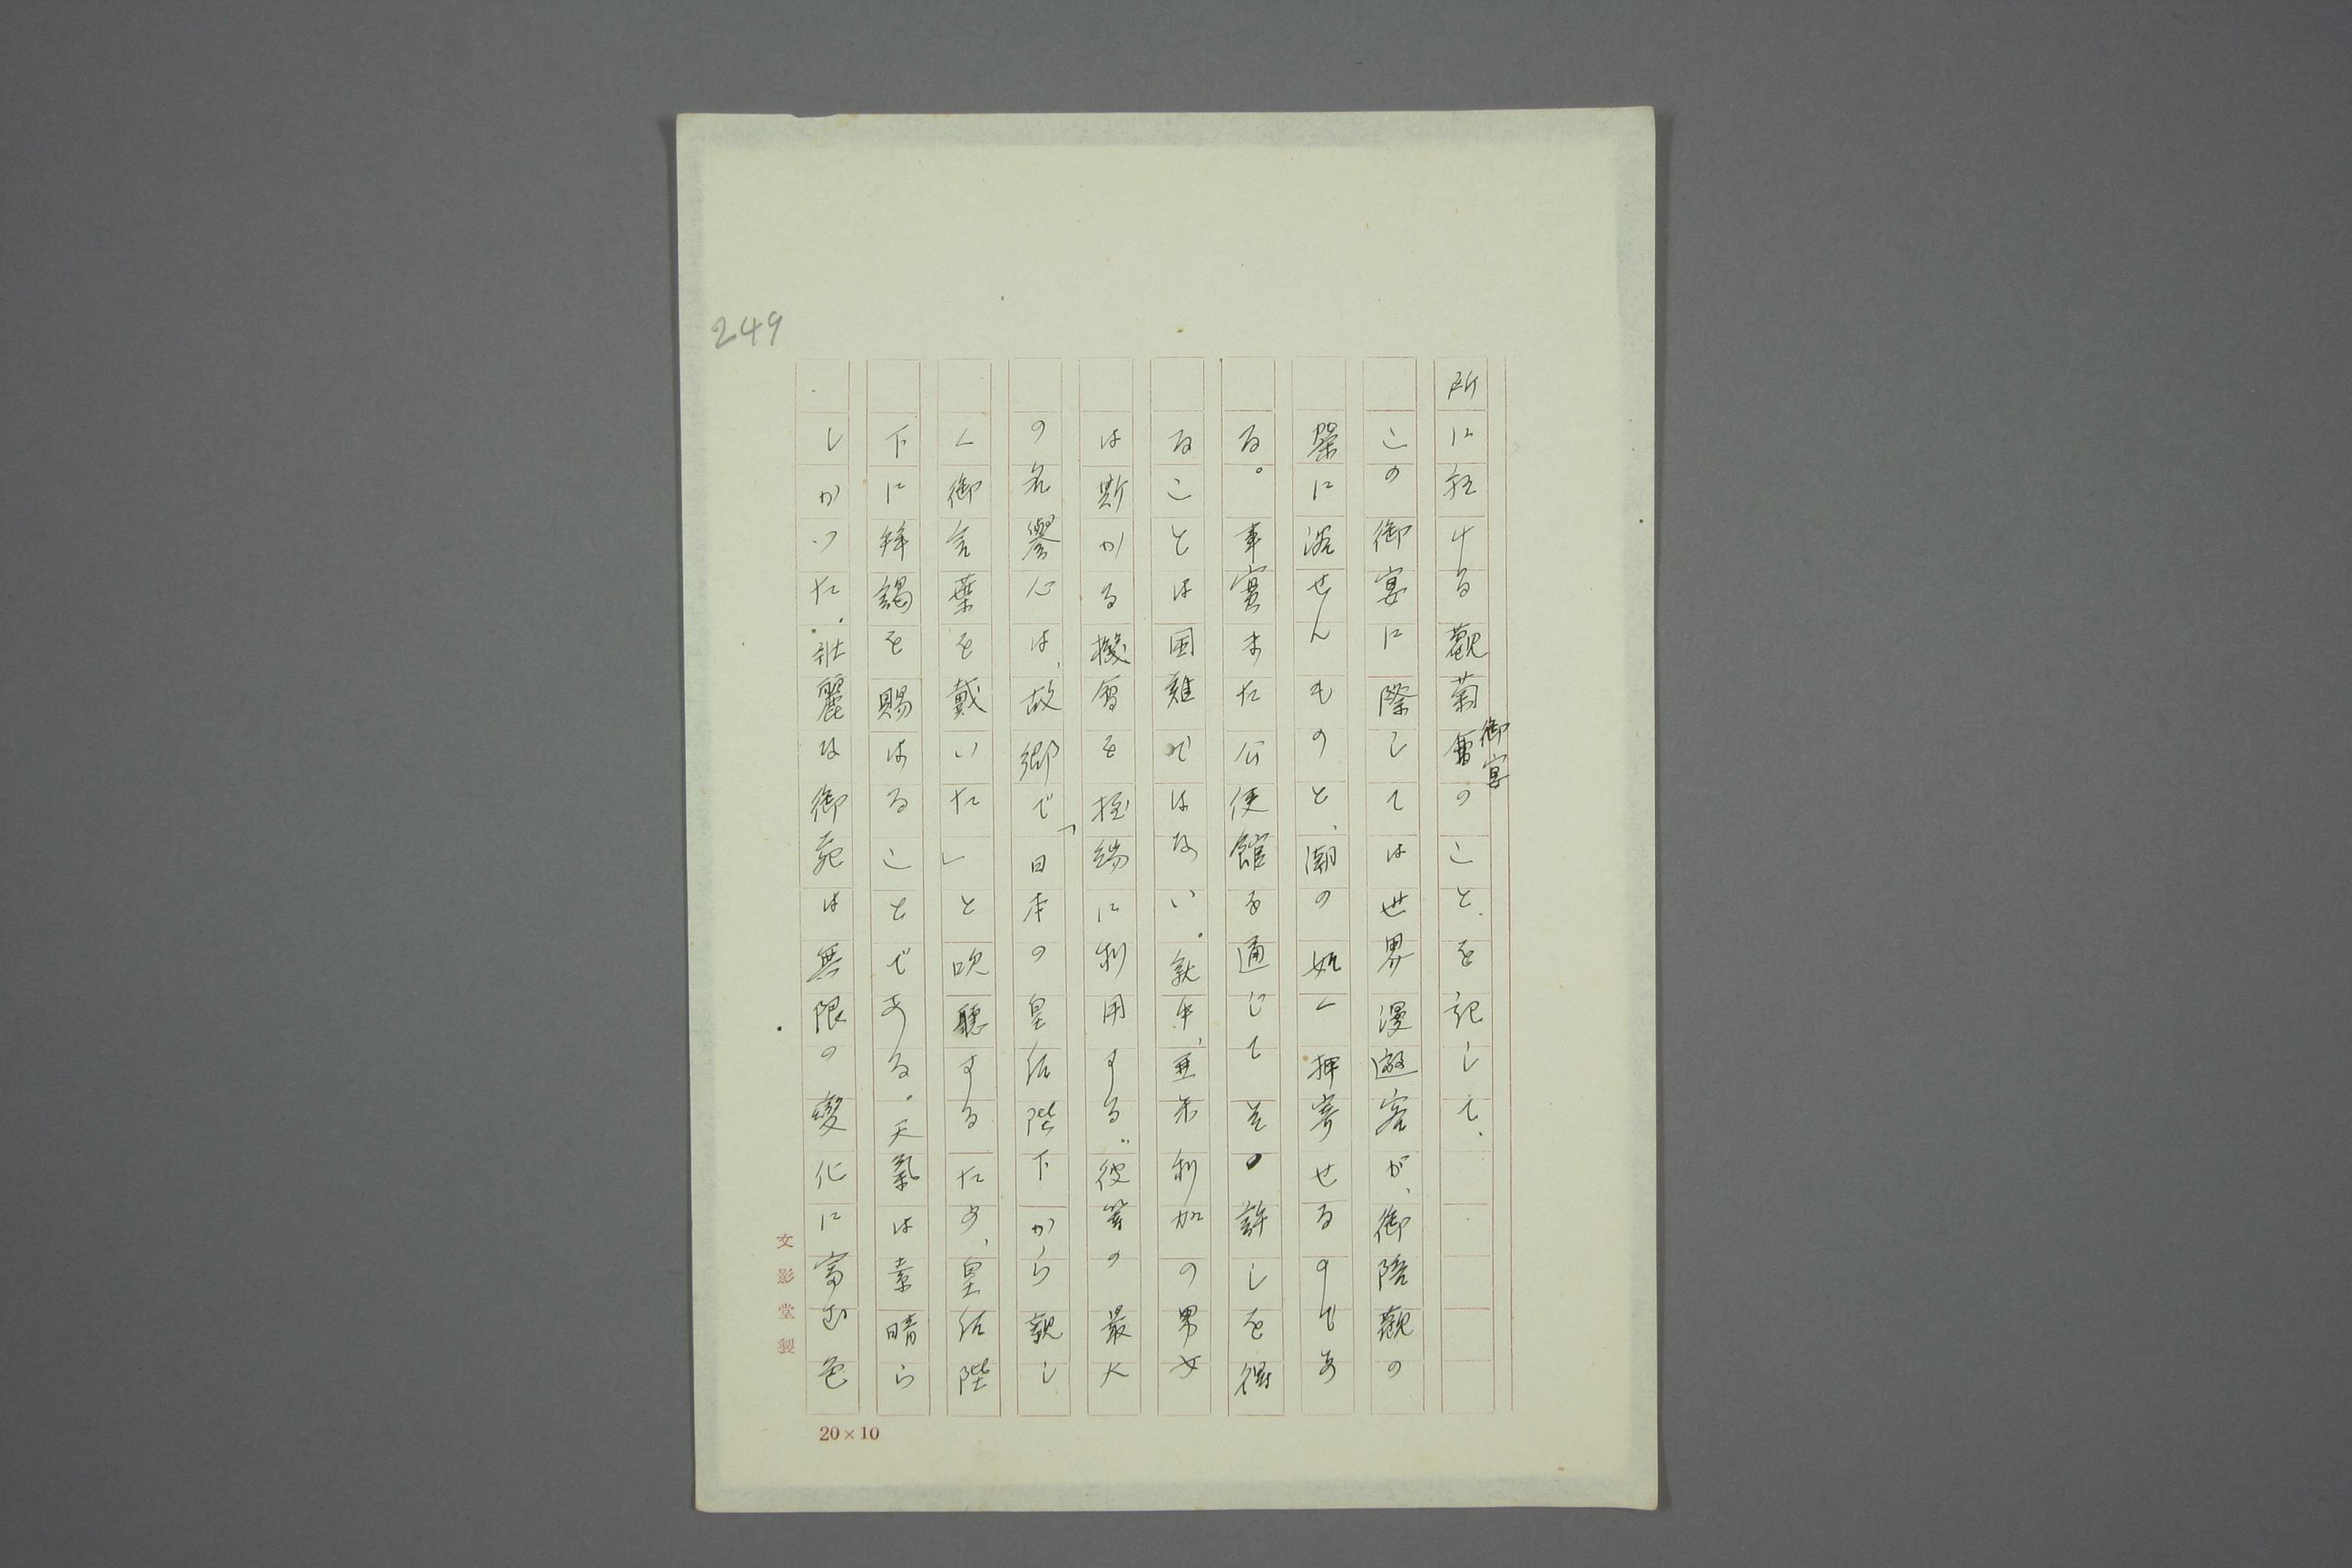 249
所に於ける觀菊會御宴のことを記して、
この御宴に際しては世界漫遊客が、御陪觀の
榮に浴せんものと、潮の如く押寄せるのであ
る。事實また公使館を通じてその許しを得
ることは困難ではない。就中、亜米利加の男女
は斯かる機會を極端に利用する。彼等の最大
の名譽心は、故郷で「日本の皇后陛下から親し
く御言葉を戴いた」と吹聽するため、皇后陛
下に拜謁を賜はることである。天氣は素晴ら
しかつた。壯麗な御苑は無限の變化に富む色
文影堂製
20×10